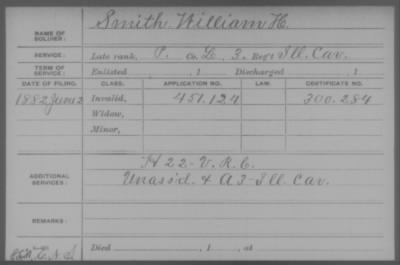 NAME OF SOLDIER: Smith, William H.
SERVICE: Late rank, P. Co. L, 3. Reg't Ill. Cav.
TERM OF SERVICE: Enlisted , 1 Discharged , 1
DATE OF FILING. CLASS. APPLICATION NO. LAW. CERTIFICATE NO.
1882 June 2 Invalid, 451.124 300.284
Widow,
Minor,
ADDITIONAL SERVICES: H 22 - V. R. C.
Unass'd. & A 3 - Ill. Cav.
REMARKS:
Died , 1 , at